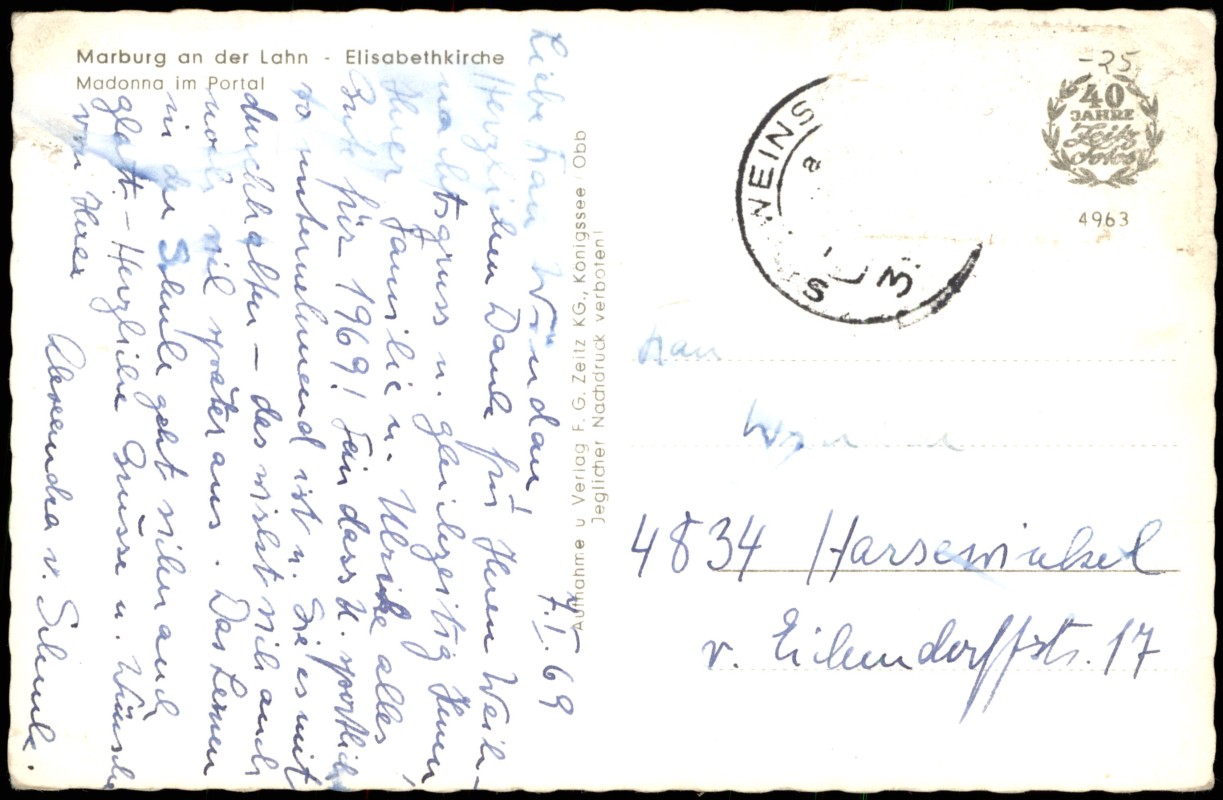 Marburg an der Lahn - Elisabethkirche
Madonna im Portal
Liebe Frau
7.I.69
Herzlichen Dank für Ihren Weih-
nachtsgruss u. gleichzeitig Ihnen
Ihrer Familie u. Ulrike alles
Gute für 1969! Fein dass U. sportlich
so unternehmend ist u. Sie es mit
durchhalten - das wirkt sich auch
noch viel später aus. Das Lernen
in der Schule geht sicher auch
glatt. - Herzliche Grüsse u. Wünsche
von Ihrer
v. Schenk.
Aufnahme u Verlag F. G. Zeitz KG., Königssee / Obb
Jeglicher Nachdruck verboten!
WEINS
a
-25
40
JAHRE
Zeitz
Fotos
4963
Frau
4834 Harsewinkel
v. Eichendorffstr. 17